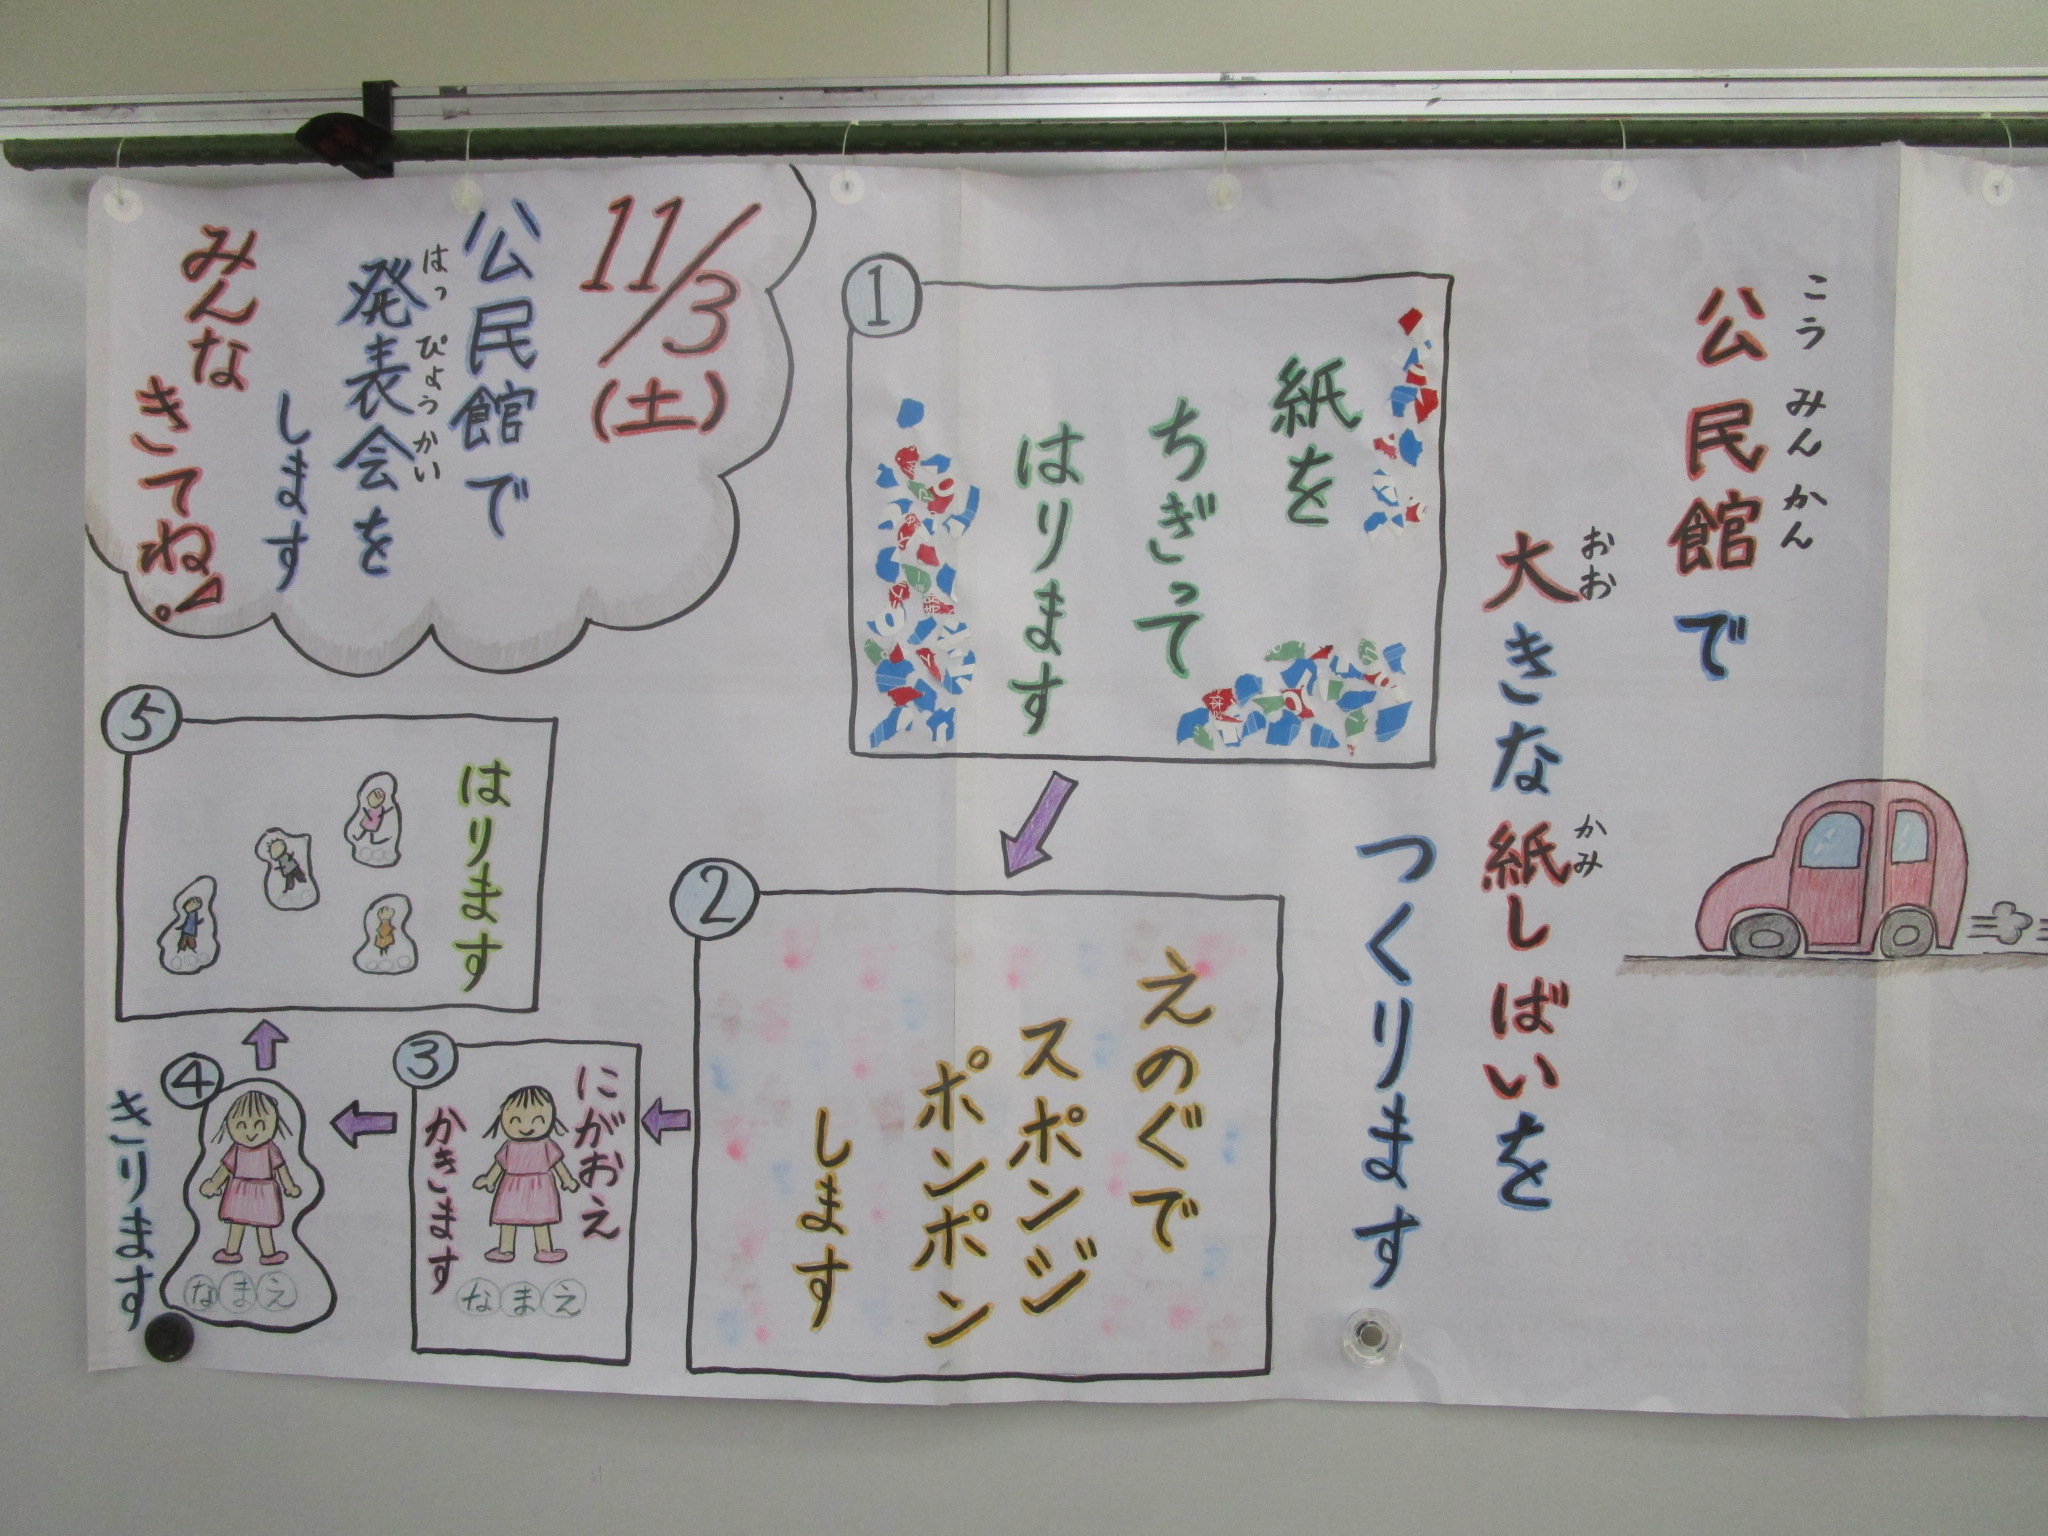 公民館で
こうみんかん
大きな紙しばいを
おお
かみ
つくります
①
紙を
ちぎって
はります
②
えのぐで
スポンジ
ポンポン
します
③
にがおえ
かきます
なまえ
④
きります
なまえ
⑤
はります
11/3
(土)
公民館で
発表会を
はっぴょうかい
します
みんな
きてね。